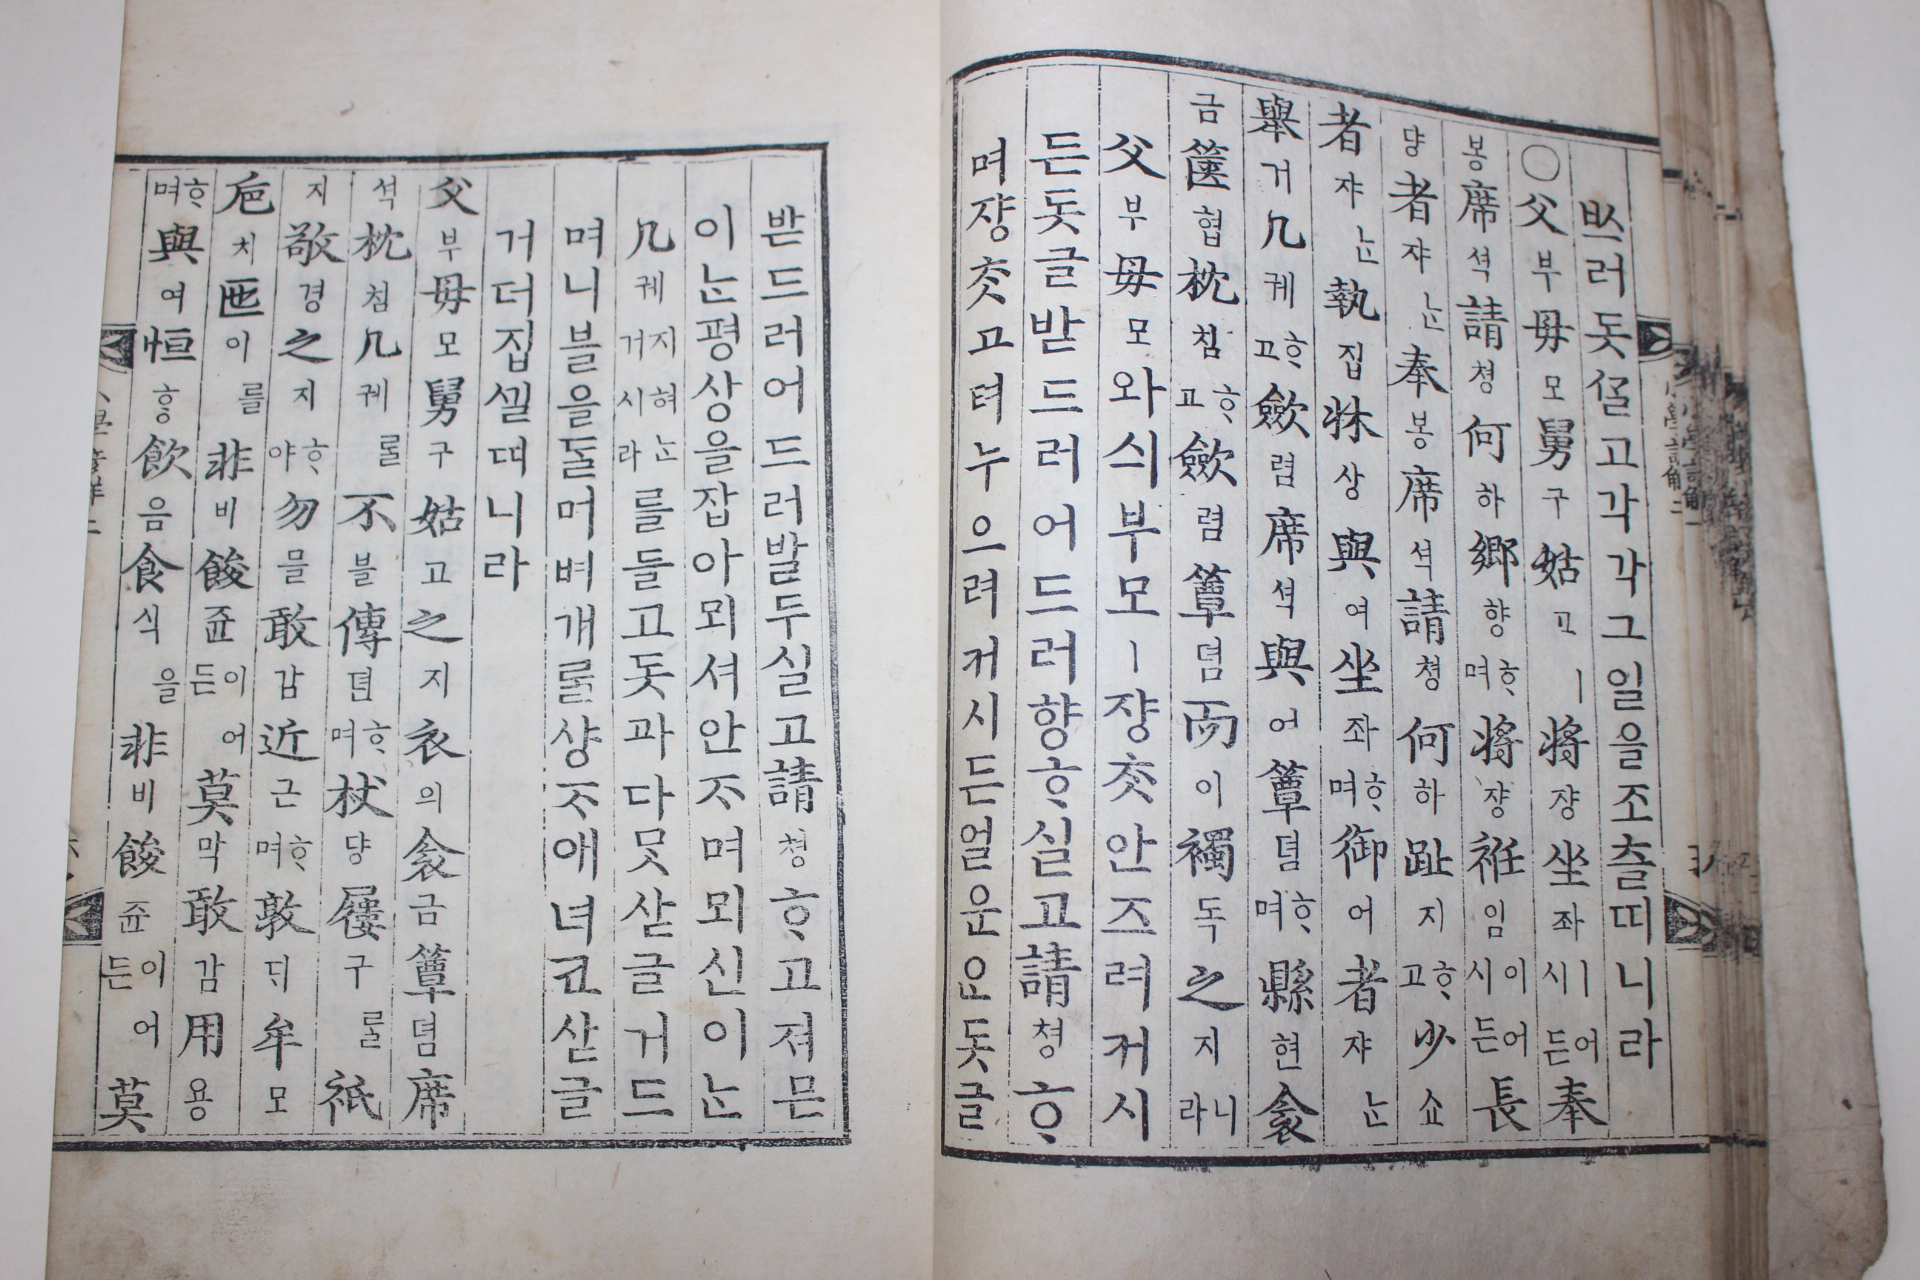 ᄡᅳ러돗ᄭᆞᆯ고각각그일을조츨띠니라
○父부母모舅구姑고ㅣ將쟝坐좌ㅣ어시든奉
봉席셕請쳥何하鄕향ᄒᆞ며將쟝衽임이어시든長
댱者쟈ᄂᆞᆫ奉봉席셕請쳥何하趾지ᄒᆞ고少쇼
者쟈ᄂᆞᆫ執집牀상與여坐좌ᄒᆞ며御어者쟈ᄂᆞᆫ
擧거几궤ᄒᆞ고斂렴席셕與어簟뎜ᄒᆞ며縣현衾
금篋협枕침ᄒᆞ고斂렴簟뎜而이襡독之지니라
父부母모와싀부모ㅣ쟝ᄎᆞᆺ안즈려커시
든돗글받드러어드러향ᄒᆞ실고請쳥ᄒᆞ
며쟝ᄎᆞᆺ고텨누으려커시든얼운은돗글
받드러어드러발두실고請쳥ᄒᆞ고져믄
이ᄂᆞᆫ평상을잡아뫼셔안ᄌᆞ며뫼신이ᄂᆞᆫ
几궤지혀ᄂᆞᆫ거시라를들고돗과다ᄆᆞᆺ삳글거드
며니블을ᄃᆞᆯ며벼개ᄅᆞᆯ샹ᄌᆞ애녀코삳글
거더집ᄭᅵᆯᄯᅵ니라
父부母모舅구姑고之지衣의衾금簟뎜席
셕枕침几궤ᄅᆞᆯ不블傳뎐ᄒᆞ며杖댱屨구ᄅᆞᆯ祇
지敬경之지ᄒᆞ야勿믈敢감近근ᄒᆞ며敦ᄃᆡ牟모
巵치匜이를非비餕쥰이든어莫막敢감用용
ᄒᆞ며與여恒ᄒᆞᆼ飮음食식을非비餕쥰이든어莫